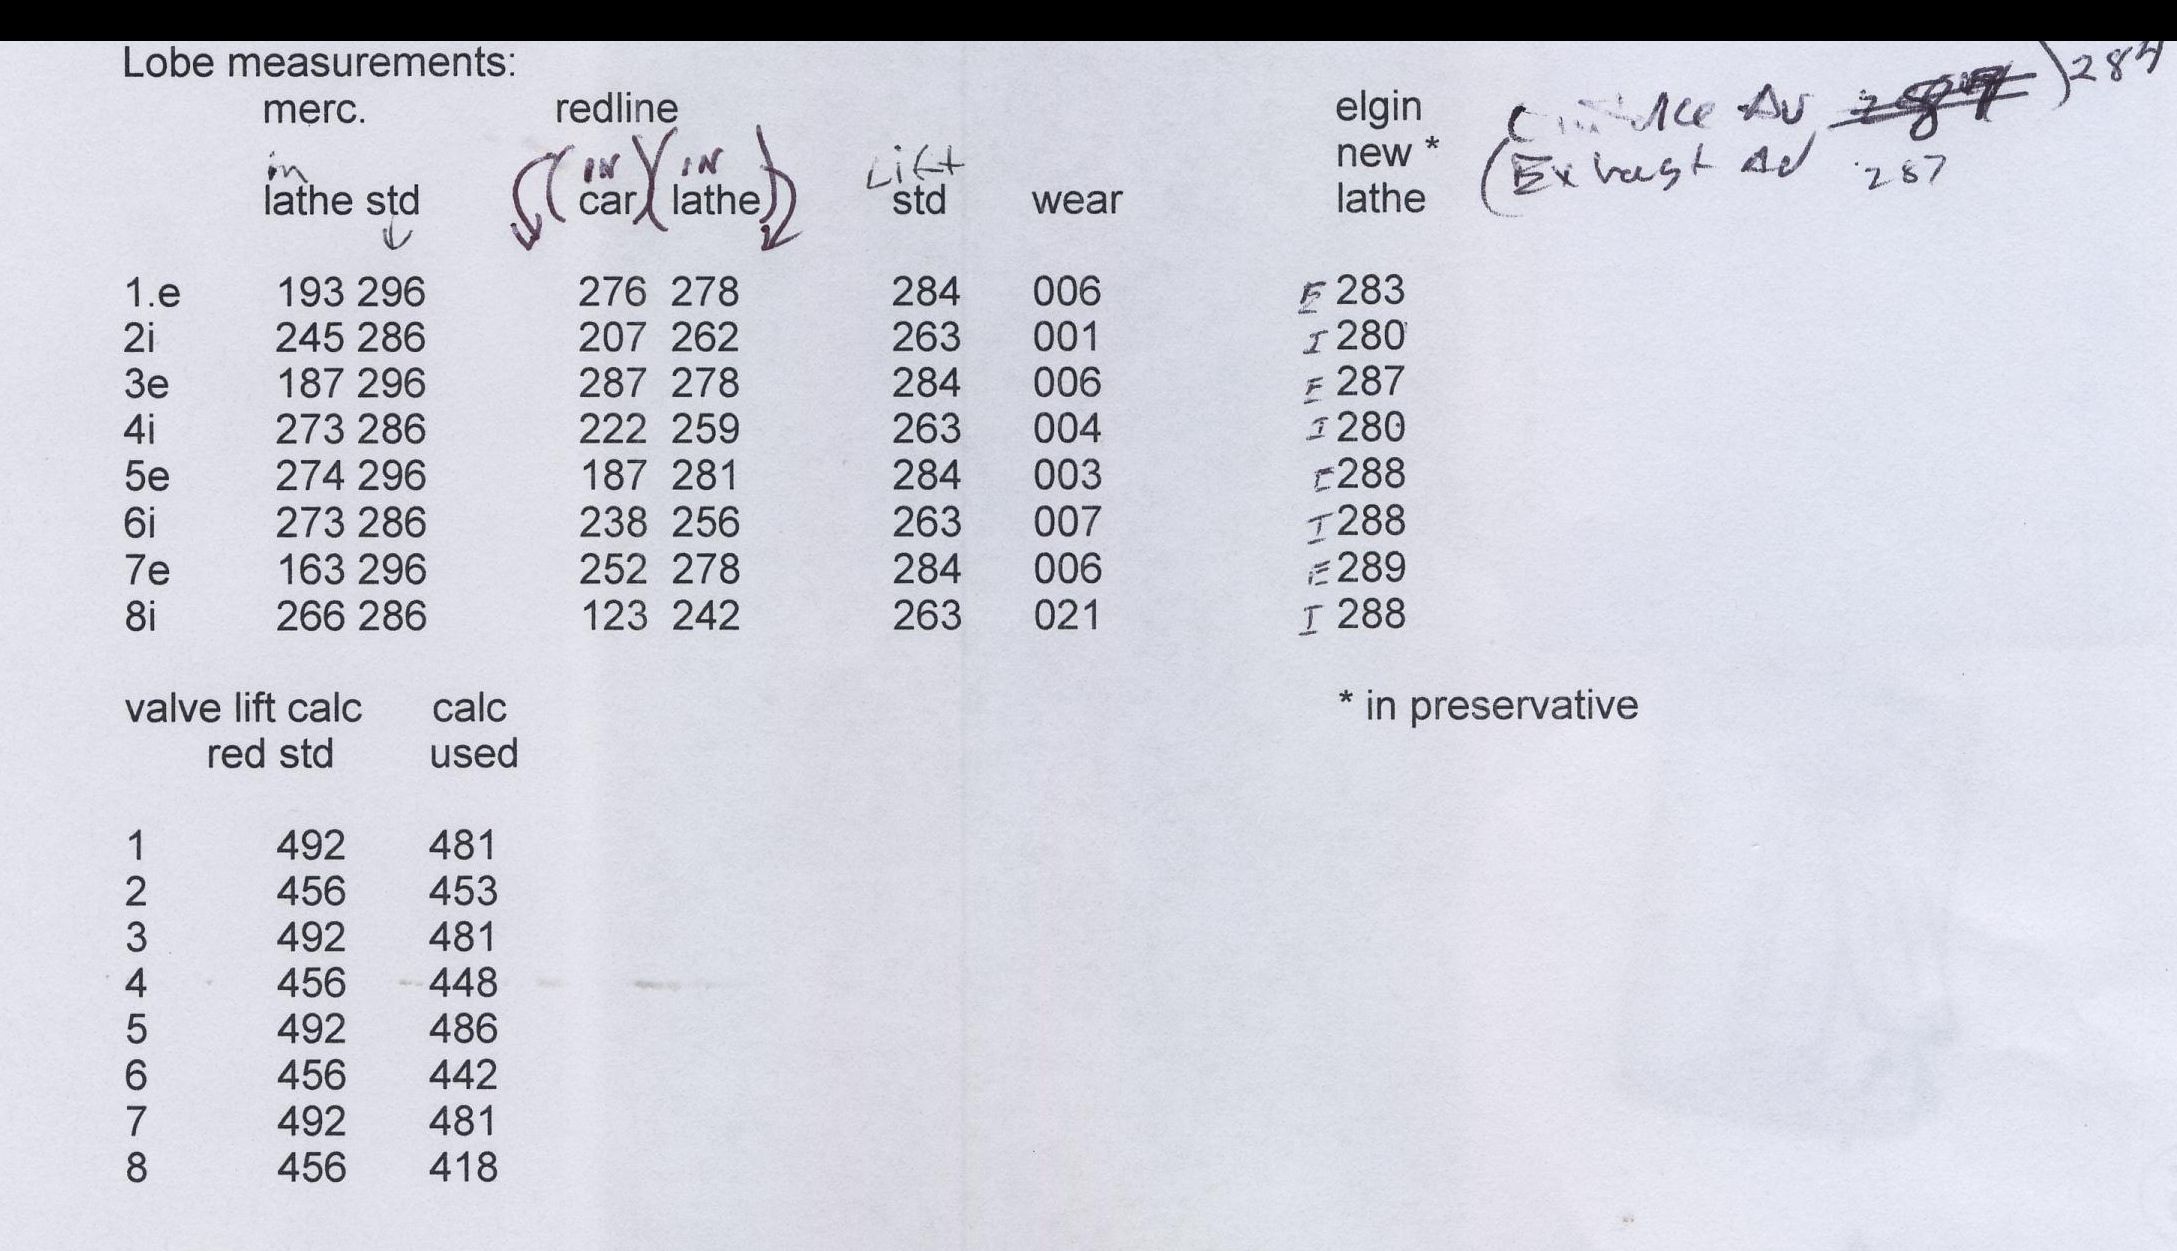 Lobe measurements:
284
merc. redline elgin
Av
new *
in IN IN Lift Exhaust Av 287
lathe std car lathe std wear lathe
1.e 193 296 276 278 284 006 E 283
2i 245 286 207 262 263 001 I 280
3e 187 296 287 278 284 006 E 287
4i 273 286 222 259 263 004 I 280
5e 274 296 187 281 284 003 E 288
6i 273 286 238 256 263 007 I 288
7e 163 296 252 278 284 006 E 289
8i 266 286 123 242 263 021 I 288
valve lift calc calc * in preservative
red std used
1 492 481
2 456 453
3 492 481
4 456 448
5 492 486
6 456 442
7 492 481
8 456 418